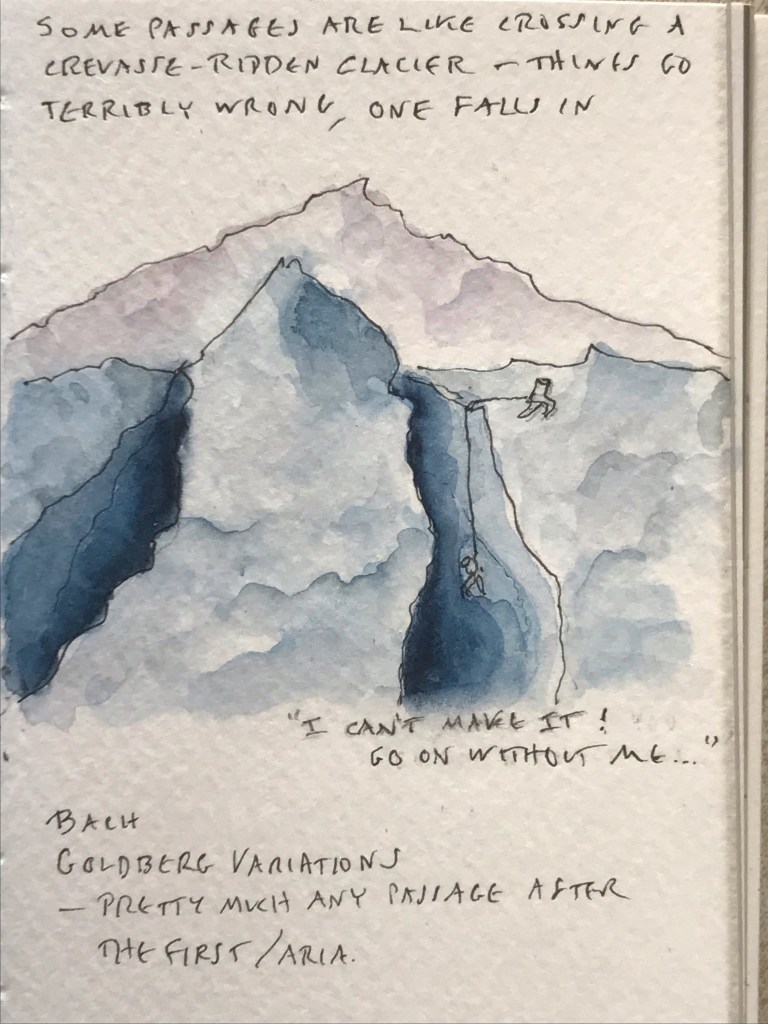 SOME PASSAGES ARE LIKE CROSSING A
CREVASSE-RIDDEN GLACIER - THINGS GO
TERRIBLY WRONG, ONE FALLS IN
"I CAN'T MAKE IT!
GO ON WITHOUT ME..."
BACH
GOLDBERG VARIATIONS
- PRETTY MUCH ANY PASSAGE AFTER
THE FIRST/ARIA.